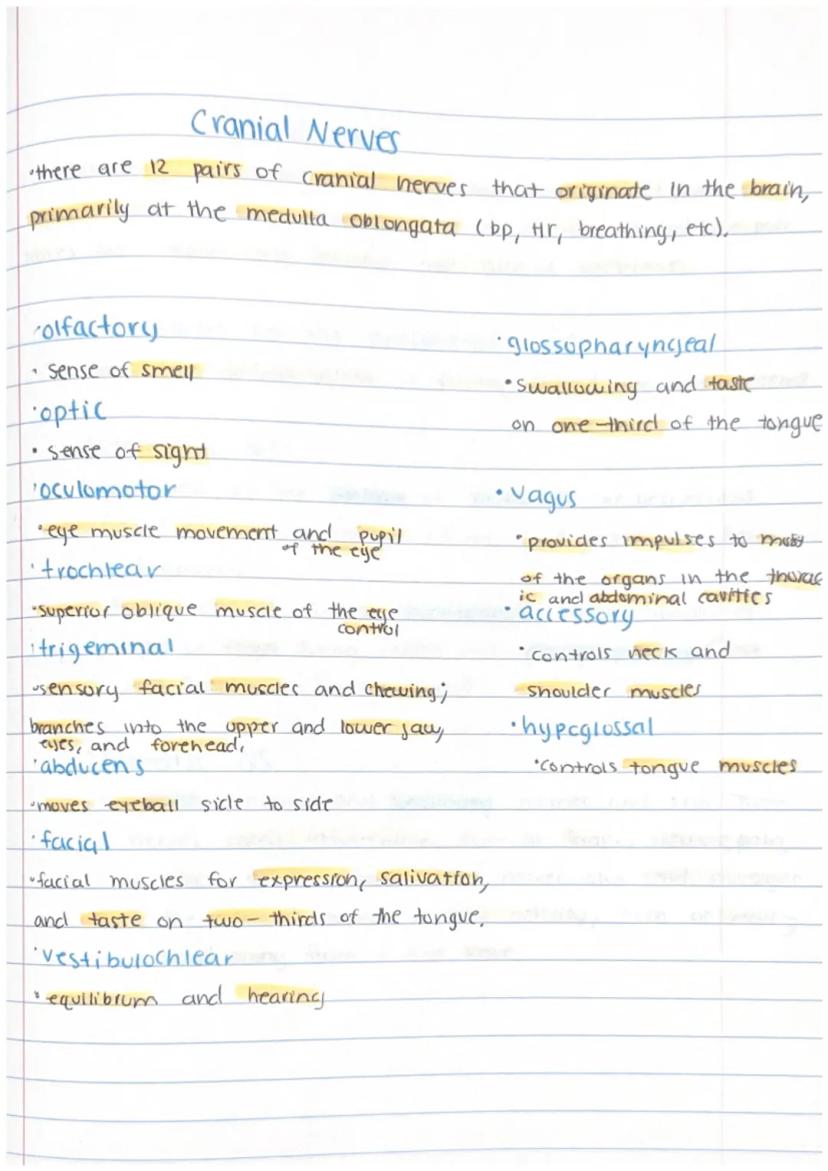 Cranial Nerves
•there are 12 pairs of cranial nerves that originate in the brain,
primarily at the medulla oblongata (bp, Hr, breathing, etc).
•olfactory
• sense of smell
•optic
• sense of sight
•oculomotor
•eye muscle movement and pupil
of the eye
•trochlear
•superior oblique muscle of the eye
control
•trigeminal
•sensory facial muscles and chewing;
branches into the upper and lower jaw,
eyes, and forehead.
•abducens
•moves eyeball side to side
•facial
•facial muscles for expression, salivation,
and taste on two-thirds of the tongue.
•vestibulochlear
•equilibrum and hearing
•glossopharyngeal
•swallowing and taste
on one-third of the tongue
•vagus
•provides impulses to most
of the organs in the thorac
ic and abdominal cavities
•accessory
•controls neck and
shoulder muscles
•hypoglossal
•controls tongue muscles